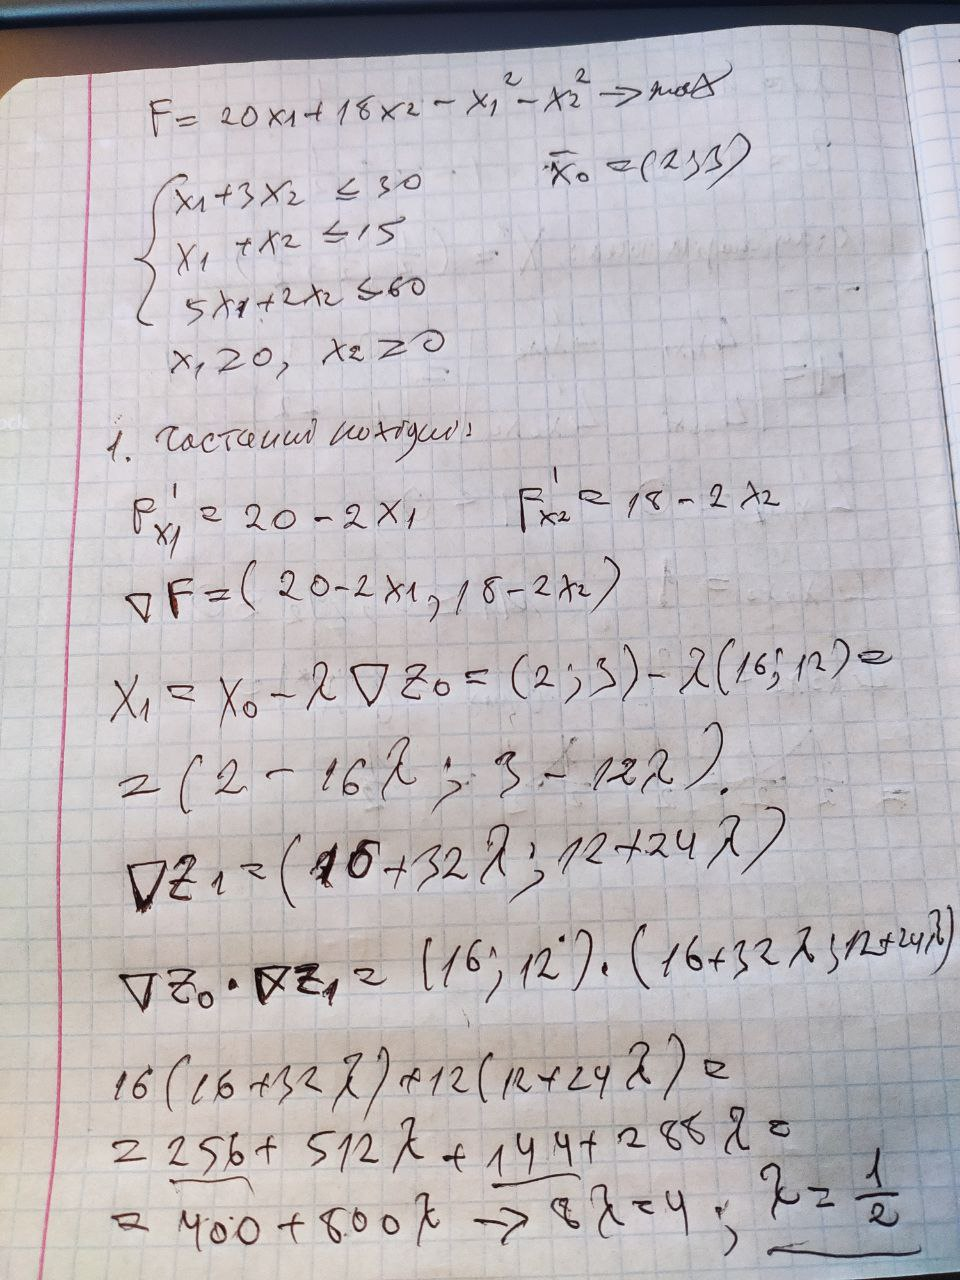 F = 20x₁ + 18x₂ - x₁² - x₂² → max
x̄₀ = (2; 3)
{ x₁ + 3x₂ ≤ 30
x₁ + x₂ ≤ 15
5x₁ + 2x₂ ≤ 60
x₁ ≥ 0, x₂ ≥ 0
1. Частинні похідні:
F'ₓ₁ = 20 - 2x₁    F'ₓ₂ = 18 - 2x₂
∇F = (20 - 2x₁; 18 - 2x₂)
X₁ = X₀ - λ∇Z₀ = (2; 3) - λ(16; 12) =
= (2 - 16λ; 3 - 12λ).
∇Z₁ = (16 + 32λ; 12 + 24λ)
∇Z₀ · ∇Z₁ = (16; 12) · (16 + 32λ; 12 + 24λ)
16(16 + 32λ) + 12(12 + 24λ) =
= 256 + 512λ + 144 + 288λ =
= 400 + 800λ → 8λ = 4 ; λ = 1/2